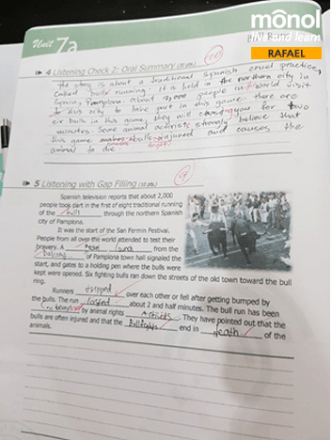 monol
INN and learn
RAFAEL
Unit 7a
4 Listening Check 2: Oral Summary
The story is about a traditional Spanish cruel practice,
called bull running. It is held in the northern city in
Spain, Pamplona. about 2,000 people in world visit
to this city to take part in this game. there are
six bulls in this game, they will for two
minutes. Some animal activists strongly believe that
this game bulls injured and causes the
animal to die
5 Listening with Gap Filling
Spanish television reports that about 2,000
people took part in the first of eight traditional running
of the bulls through the northern Spanish
city of Pamplona.
It was the start of the San Fermin Festival.
People from all over the world attended to test their
bravery. A from the
of Pamplona town hall signaled the
start, and gates to a holding pen where the bulls were
kept were opened. Six fighting bulls ran down the streets of the old town toward the bull
ring.
Runners tripped over each other or fell after getting bumped by
the bulls. The run lasted about 2 and half minutes. The bull run has been
by animal rights activists. They have pointed out that the
bulls are often injured and that the bullfights end in death of the
animals.